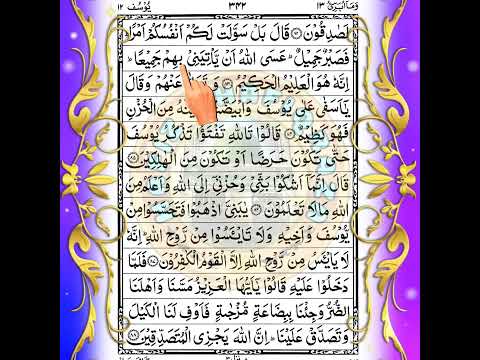 وَمَآ اُبَرِّئُ ١٣
٣٤٢
يُوْسُف ١٢
لَصٰدِقُوْنَ ﴿٨٢﴾ قَالَ بَلْ سَوَّلَتْ لَكُمْ اَنْفُسُكُمْ اَمْرًاؕ
فَصَبْرٌ جَمِيْلٌؕ عَسَى اللّٰهُ اَنْ يَّاْتِيَنِيْ بِهِمْ جَمِيْعًاؕ
اِنَّهٗ هُوَ الْعَلِيْمُ الْحَكِيْمُ ﴿٨٣﴾ وَ عَنْهُمْ وَقَالَ
يٰۤاَسَفٰى عَلٰى يُوْسُفَ وَابْيَضَّتْ مِنَ الْحُزْنِ
فَهُوَ كَظِيْمٌ ﴿٨٤﴾ قَالُوْا تَاللّٰهِ تَفْتَؤُا تَذْكُرُ يُوْسُفَ
حَتّٰى تَكُوْنَ حَرَضًا اَوْ تَكُوْنَ مِنَ الْهٰلِكِيْنَ ﴿٨٥﴾
قَالَ اِنَّمَاۤ اَشْكُوْا بَثِّيْ وَحُزْنِيْۤ اِلَى اللّٰهِ وَاَعْلَمُ مِنَ
اللّٰهِ مَا لَا تَعْلَمُوْنَ ﴿٨٦﴾ يٰبَنِيَّ اذْهَبُوْا فَتَحَسَّسُوْا مِنْ
يُّوْسُفَ وَاَخِيْهِ وَلَا تَايْـَٔسُوْا مِنْ رَّوْحِ اللّٰهِؕ اِنَّهٗ
لَا يَايْـَٔسُ مِنْ رَّوْحِ اللّٰهِ اِلَّا الْقَوْمُ الْكٰفِرُوْنَ ﴿٨٧﴾ فَلَمَّا
دَخَلُوْا عَلَيْهِ قَالُوْا يٰۤاَيُّهَا الْعَزِيْزُ مَسَّنَا وَاَهْلَنَا
الضُّرُّ وَجِئْنَا بِبِضَاعَةٍ مُّزْجٰىةٍ فَاَوْفِ لَنَا الْكَيْلَ
وَتَصَدَّقْ عَلَيْنَاؕ اِنَّ اللّٰهَ يَجْزِي الْمُتَصَدِّقِيْنَ ﴿٨٨﴾